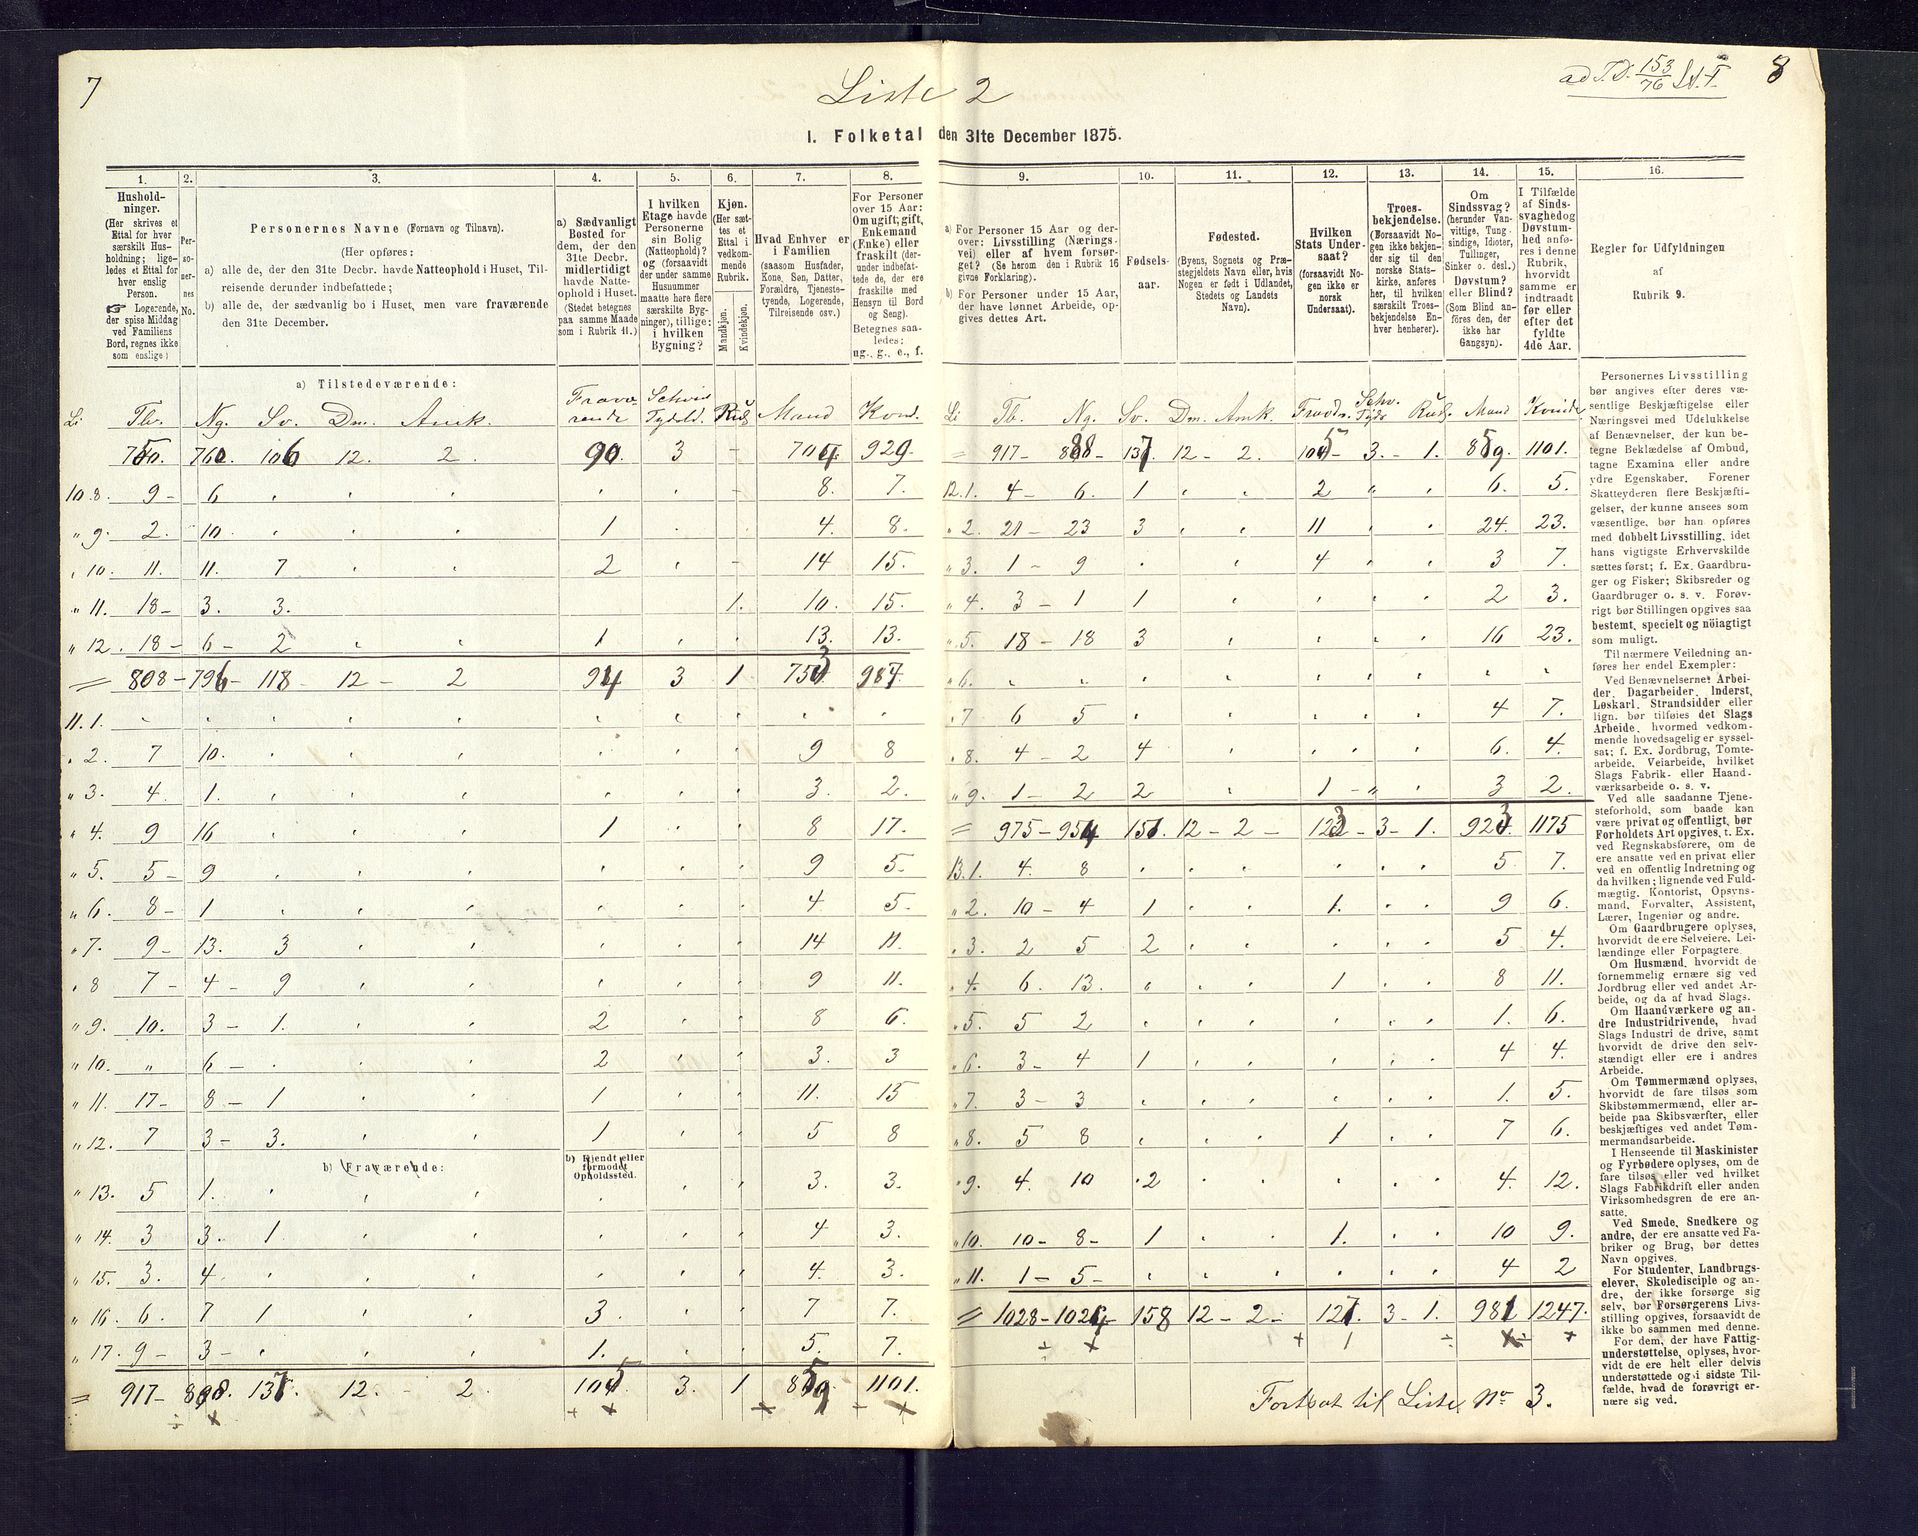 7
Liste 2
ad T.D. 153/76 Lit. I
8
1. Folketal den 31te December 1875.
1. 2. 3. 4. 5. 6. 7. 8.
9. 10. 11. 12. 13. 14. 15. 16.
Hushold-
ninger.
(Her skrives et
Ettal for hver
særskilt Hus-
holdning; lige-
ledes et Ettal for
hver enslig
Person.
☞ Logerende,
der spise Middag
ved Familiens
Bord, regnes ikke
som enslige)
Per-
so-
ner-
nes
No.
Personernes Navne (Fornavn og Tilnavn).
(Her opføres:
a) alle de, der den 31te Decbr. havde Natteophold i Huset, Til-
reisende derunder indbefattede;
b) alle de, der sædvanlig bo i Huset, men vare fraværende
den 31te December.
a) Sædvanligt
Bosted for
dem, der den
31te Decbr.
midlertidigt
havde Natte-
ophold i Huset.
(Stedet betegnes
paa samme Maade
som i Rubrik 11.)
I hvilken
Etage havde
Personerne
sin Bolig
(Natteophold)?
og (forsaavidt
der under samme
Husnummer
maatte høre flere
særskilte Byg-
ninger), tillige:
i hvilken
Bygning?
Kjøn.
(Her sæt-
tes et
Ettal i
vedkom-
mende
Rubrik.
Mandkjøn.
Kvindekjøn.
Hvad Enhver er
i Familien
(saasom Husfader,
Kone, Søn, Datter,
Forældre, Tjeneste-
tyende, Logerende,
Tilreisende osv.)
For Personer
over 15 Aar:
Om ugift; gift,
Enkemand
(Enke) eller
fraskilt (der-
under indbefat-
tede de, der ere
fraskilte med
Hensyn til Bord
og Seng).
Betegnes saa-
ledes:
ug., g., e., f.
a) For Personer 15 Aar og der-
over: Livsstilling (Nærings-
vei) eller af hvem forsør-
get? (Se herom den i Rubrik 16
givne Forklaring).
b) For Personer under 15 Aar,
der have lønnet Arbeide, op-
gives dettes Art.
Fødsels-
aar.
Fødested.
(Byens, Sognets og Præ-
stegjeldets Navn eller, hvis
Nogen er født i Udlandet,
Stedets og Landets
Navn).
Hvilken
Stats Under-
saat?
(forsaavidt No-
gen ikke er
norsk
Undersaat).
Troes-
bekjendelse.
(Forsaavidt No-
gen ikke bekjen-
der sig til den
norske Stats-
kirke, anføres
her, til hvilken
særskilt Troes-
bekjendelse En-
hver henhører).
Om
Sindssvag?
(herunder Van-
vittige, Tung-
sindige, Idioter,
Tullinger,
Sinker o. desl.)
Døvstum?
eller Blind?
(Som Blind an-
føres den, der
ikke har
Gangsyn).
I Tilfælde
af Sinds-
svaghed og
Døvstum-
hed anfø-
res i denne
Rubrik,
hvorvidt
samme er
indtraadt
før eller
efter det
fyldte
4de Aar.
Regler for Udfyldningen
af
Rubrik 9.
a) Tilstedeværende:
Li Tb. Ng. Sv. Dm. Amk. Fravæ-rende Schwis Tydskl. Rusl Mand Kvind.
750. 760. 106 12. 2. 90. 3 - 704 929.
10.8. 9- 6 8. 7.
" 9. 2. 10. 1 4. 8.
" 10. 11. 11. 7 2 - 14 15.
" 11. 18- 3. 3. 1. 10. 15.
" 12. 18- 6- 2 1 13. 13.
= 808- 796- 118- 12- 2 94 3 1 753 987.
11.1.
" 2. 7 10. 9 8
" 3. 4. 1. 3. 2.
" 4. 9 16 1 8 17.
" 5. 5- 9 9 5.
" 6. 8- 1 4 5.
" 7. 9- 13. 3 14 11.
" 8 7- 4- 9 9 11.
" 9. 10. 3- 1. 2 8 6.
" 10. " 6- 2 3. 3
" 11. 17- 8- 1 1 11. 15
" 12. 7 3- 3. 1 5 8
b) Fraværende:
b) Kjendt eller
formodet
Opholdssted.
" 13. 5 1. 3. 3.
" 14. 3 3. 1 4 3.
" 15. 3. 4. 4. 3.
" 16. 6. 7 1 3. 7 7.
" 17. 9- 3- 1. 5. 7.
= 917- 888. 137. 12. - 2. 105 3. 1 859 1101.
Li Tb. Ng. Sv. Dm. Amk. Fravd. Schv. Tyds Rusl. Mand Kvinde
= 917- 888- 137 12- 2. 105 3.- 1. 859. 1101.
12.1. 4- 6. 1 2 6. 5.
" 2. 21- 23 3 11 24. 23.
" 3. 1- 9 4 3 7.
" 4. 3- 1 1 2 3.
" 5. 18- 18 3 16 23.
" 6.
" 7 6 5 4 7.
" 8. 4- 2 4 6. 4.
" 9. 1- 2 2 1- 3 2.
= 975- 954 151. 12- 2- 123- 3- 1. 923 1175
13.1. 4. 8 5 7.
" 2. 10- 4 1 1. 9 6.
" 3. 2 5 2 5 4.
" 4. 6. 13. 1 8 11.
" 5. 5 2 1. 6.
" 6. 3- 4 1 4 4.
" 7. 3- 3 1. 5.
" 8. 5 8 1. 7 6.
" 9. 4. 10 2 4. 12.
" 10. 10- 8- 1 1. 10 9.
" 11. 1- 5- 4 2
= 1028- 1024 158 12- 2- 127. 3- 1. 981 1247.
Fortsat til Liste No 3.
Personernes Livsstilling
bør angives efter deres væ-
sentlige Beskjæftigelse eller
Næringsvei med Udelukkelse
af Benævnelser, der kun be-
tegne Beklædelse af Ombud,
tagne Examina eller andre
ydre Egenskaber. Forener
Skatteyderen flere Beskjæfti-
gelser, der kunne ansees som
væsentlige, bør han opføres
med dobbelt Livsstilling, idet
hans vigtigste Erhvervskilde
sættes først; f. Ex. Gaardbru-
ger og Fisker; Skibsreder og
Gaardbruger o. s. v. Forøv-
rigt bør Stillingen opgives saa
bestemt, specielt og nöiagtigt
som muligt.
Til nærmere Veiledning an-
føres her endel Exempler:
Ved Benævnelserne: Arbei-
der, Dagarbeider, Inderst,
Løskarl, Strandsidder eller
lign. bør tilføies det Slags
Arbeide, hvormed vedkom-
mende hovedsagelig er syssel-
sat; f. Ex. Jordbrug, Tomte-
arbeide, Veiarbeide, hvilket
Slags Fabrik- eller Haand-
værksarbeide o. s. v.
Ved alle saadanne Tjene-
steforhold, som baade kan
være privat og offentligt, bør
Forholdets Art opgives, t. Ex.
ved Regnskabsførere, om de
ere ansatte ved en privat eller
ved en offentlig Indretning og
da hvilken; lignende ved Fuld-
mægtig, Kontorist, Opsyns-
mand, Forvalter, Assistent,
Lærer, Ingeniør og andre.
Om Gaardbrugere oplyses,
hvorvidt de ere Selveiere, Lei-
lændinge eller Forpagtere.
Om Husmænd, hvorvidt de
fornemmelig ernære sig ved
Jordbrug eller ved andet Ar-
beide, og da af hvad Slags.
Om Haandværkere og an-
dre Industridrivende, hvad
Slags Industri de drive, samt
hvorvidt de drive den selv-
stændigt eller ere i andres
Arbeide.
Om Tømmermænd oplyses,
hvorvidt de fare tilsøs som
Skibstømmermænd, eller ar-
beide paa Skibsværfter, eller
beskjæftiges ved andet Tøm-
mermandsarbeide.
I Henseende til Maskinister
og Fyrbødere oplyses, om de
fare tilsøs eller ved hvilket
Slags Fabrikdrift eller anden
Virksomhedsgren de ere an-
satte.
Ved Smede, Snedkere og
andre, der ere ansatte ved Fa-
briker og Brug, bør dettes
Navn opgives.
For Studenter, Landbrugs-
elever, Skoledisciple og an-
dre, der ikke forsørge sig
selv, bør Forsørgerens Livs-
stilling opgives, forsaavidt de
ikke bo sammen med denne.
For dem, der have Fattig-
understøttelse, oplyses, hvor-
vidt de ere helt eller delvis
understøttede og i sidste Til-
fælde, hvad de forøvrigt er-
nære sig ved.